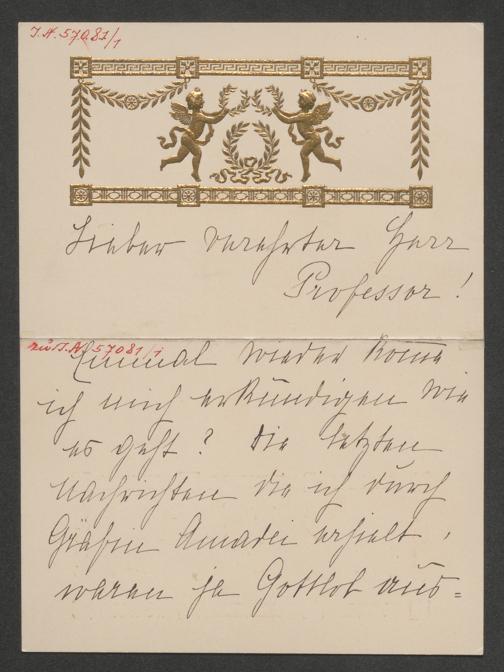 I.N. 57081/1
Lieber verehrter Herr
Professor!
zu I.N. 57081/1
Einmal wieder komme
ich mich erkundigen wie
es geht? Die letzten
Nachrichten die ich durch
Gräfin Amadei erhielt,
waren ja Gottlob aus=